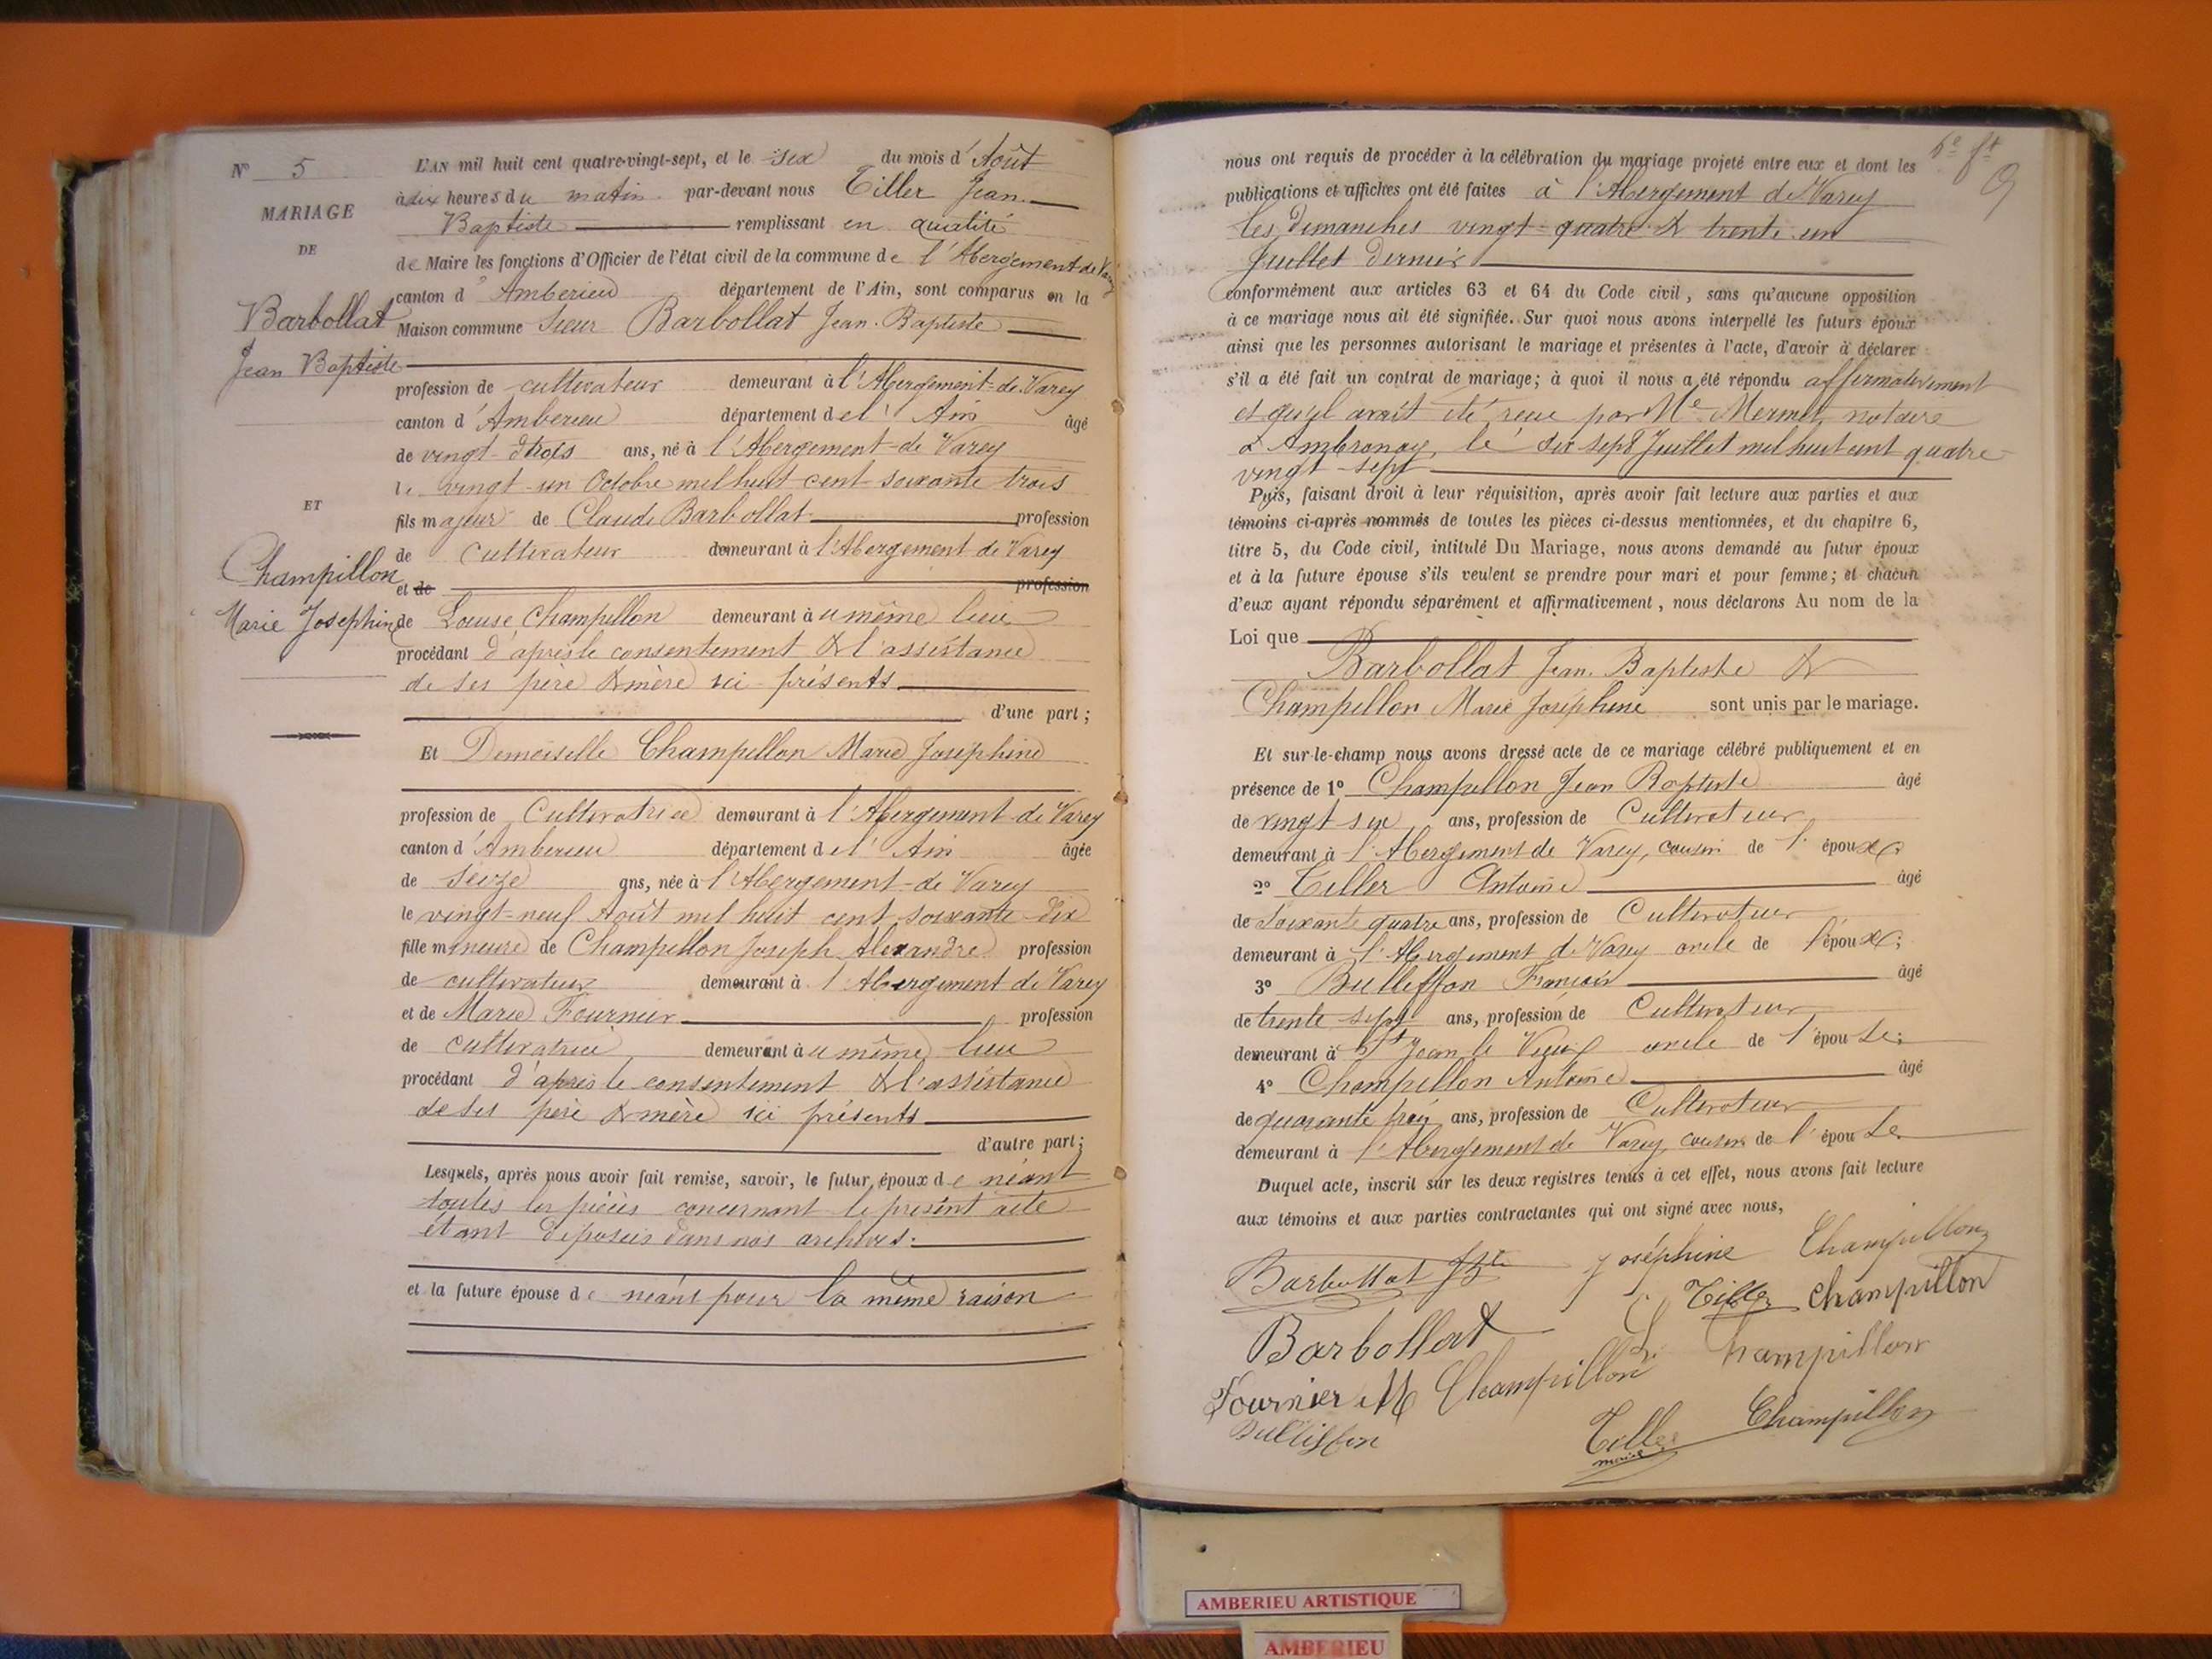 N° 5
MARIAGE
DE
Barbollat
Jean Baptiste
ET
Champillon
Marie Josephine
L'AN mil huit cent quatre-vingt-sept, et le six du mois d'Août
à dix heures du matin par-devant nous Tiller Jean
Baptiste remplissant en qualité
de Maire les fonctions d'Officier de l'état civil de la commune de l'Abergement de Varey
canton d'Amberieu département de l'Ain, sont comparus en la
Maison commune Sieur Barbollat Jean-Baptiste
profession de cultivateur demeurant à l'Abergement-de-Varey
canton d'Amberieu département de l'Ain âgé
de vingt-trois ans, né à l'Abergement-de Varey
le vingt-un Octobre mil huit cent soixante trois
fils majeur de Claude Barbollat profession
de Cultivateur demeurant à l'Abergement de Varey
et de profession
de Louise Champillon demeurant à u même lieu
procédant d'après le consentement & l'assistance
de ses père & mère ici présents
d'une part ;
Et Demoiselle Champillon Marie Josephine
profession de Cultivatrice demeurant à l'Abergement-de Varey
canton d'Amberieu département de l'Ain âgée
de seize ans, née à l'Abergement-de Varey
le vingt-neuf Août mil huit cent soixante-dix
fille mineure de Champillon Joseph Alexandre profession
de cultivateur demeurant à l'Abergement de Varey
et de Marie Fournier profession
de cultivatrice demeurant à u même lieu
procédant d'après le consentement & l'assistance
de ses père & mère ici présents
d'autre part ;
Lesquels, après nous avoir fait remise, savoir, le futur époux de néant
toutes les pièces concernant le présent acte
étant déposées dans nos archives.
et la future épouse de néant pour la même raison
nous ont requis de procéder à la célébration du mariage projeté entre eux et dont les
publications et affiches ont été faites à l'Abergement de Varey
les Dimanches vingt-quatre & trente-un
Juillet dernier
conformément aux articles 63 et 64 du Code civil, sans qu'aucune opposition
à ce mariage nous ait été signifiée. Sur quoi nous avons interpellé les futurs époux
ainsi que les personnes autorisant le mariage et présentes à l'acte, d'avoir à déclarer
s'il a été fait un contrat de mariage; à quoi il nous a été répondu affirmativement
et qu'il avait été reçu par Me Mermet, notaire
à Ambronay, le dix sept Juillet mil huit cent quatre
vingt-sept
Puis, faisant droit à leur réquisition, après avoir fait lecture aux parties et aux
témoins ci-après nommés de toutes les pièces ci-dessus mentionnées, et du chapitre 6,
titre 5, du Code civil, intitulé Du Mariage, nous avons demandé au futur époux
et à la future épouse s'ils veulent se prendre pour mari et pour femme; et chacun
d'eux ayant répondu séparément et affirmativement, nous déclarons Au nom de la
Loi que
Barbollat Jean-Baptiste &
Champillon Marie Joséphine sont unis par le mariage.
Et sur-le-champ nous avons dressé acte de ce mariage célébré publiquement et en
présence de 1° Champillon Jean Baptiste âgé
de vingt six ans, profession de Cultivateur
demeurant à l'Abergement de Varey, cousin de l'époux
2° Tiller Antoine âgé
de soixante quatre ans, profession de Cultivateur
demeurant à l'Abergement de Varey oncle de l'époux ;
3° Bulliffon François âgé
de trente sept ans, profession de Cultivateur
demeurant à St Jean le Vieux oncle de l'épouse ;
4° Champillon Antoine âgé
de quarante trois ans, profession de Cultivateur
demeurant à l'Abergement de Varey, cousin de l'épouse
Duquel acte, inscrit sur les deux registres tenus à cet effet, nous avons fait lecture
aux témoins et aux parties contractantes qui ont signé avec nous,
Barbollat Joséphine Champillon
Tiller Champillon
Barbollat Champillon
Fournier M Champillon
Bulliffon Tiller Champillon
maire
AMBERIEU ARTISTIQUE
AMBERIEU